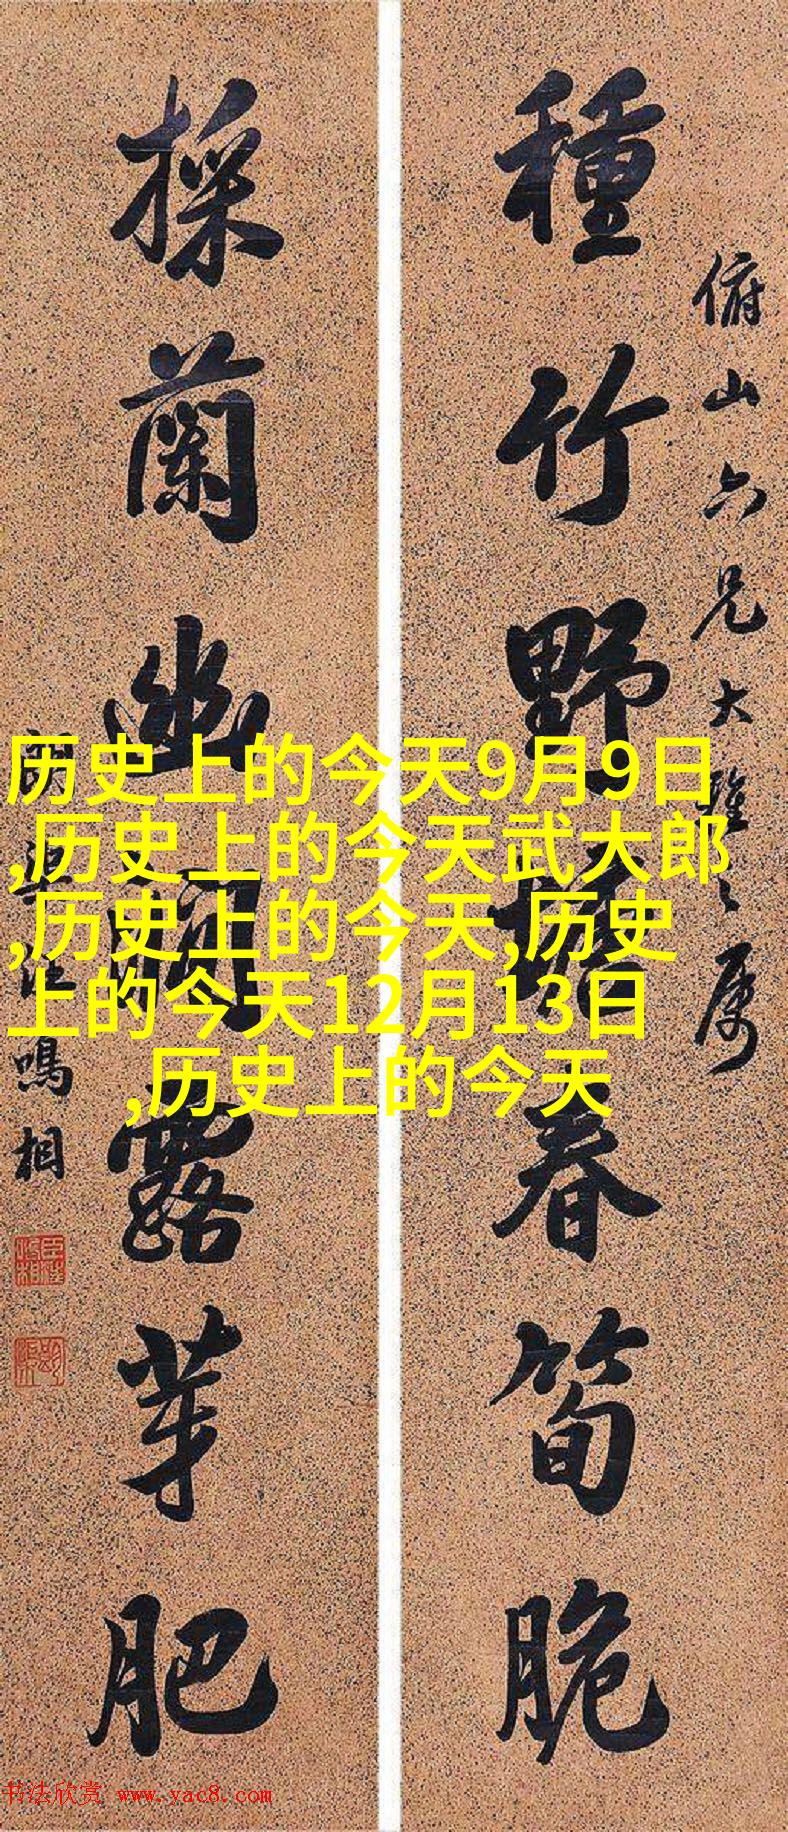 種竹野塘春筍脆
俯山六兄大雅之属
採蘭幽澗露芽肥
鳴相
历史上的今天9月9日
,历史上的今天武大郎
,历史上的今天,历史
上的今天12月13日
,历史上的今天
书法欣赏 www.yac8.com